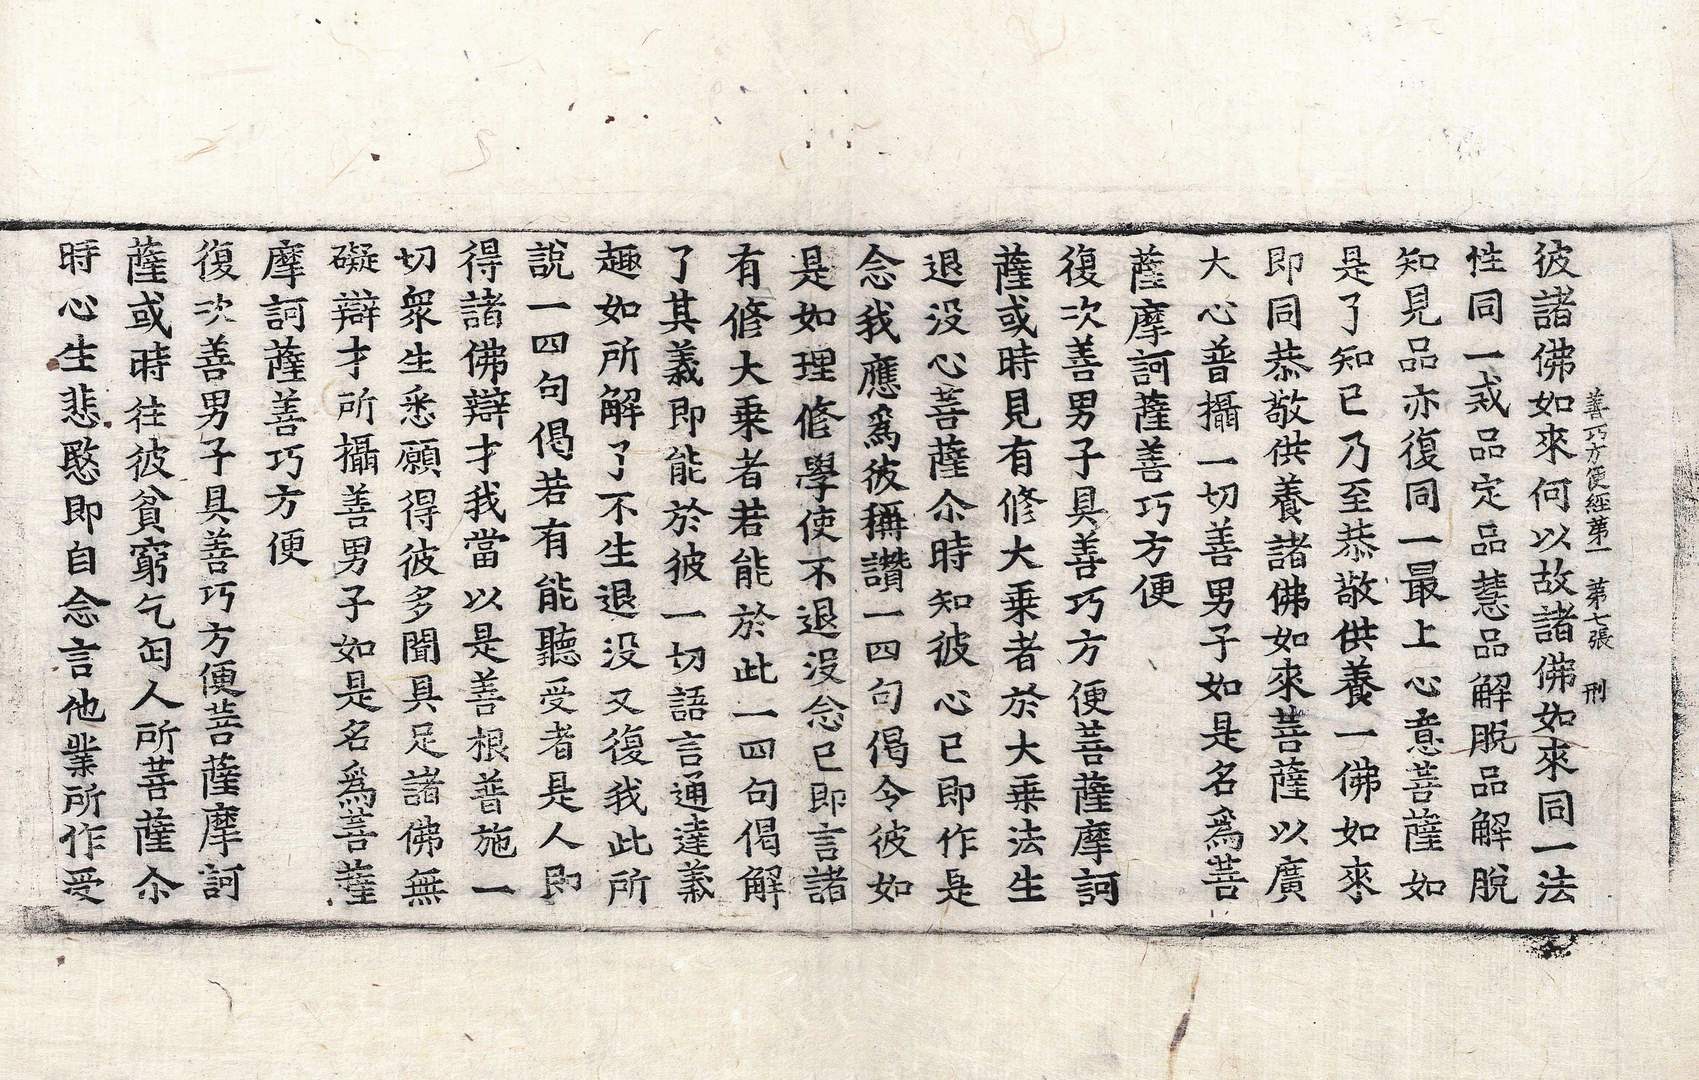 善巧方便經第一　第七張　刑
彼諸佛如來何以故諸佛如來同一法
性同一戒品定品慧品解脫品解脫
知見品亦復同一最上心意菩薩如
是了知已乃至恭敬供養一佛如來
即同恭敬供養諸佛如來菩薩以廣
大心普攝一切善男子如是名爲菩
薩摩訶薩善巧方便
復次善男子具善巧方便菩薩摩訶
薩或時見有修大乘者於大乘法生
退没心菩薩尒時知彼心已即作是
念我應爲彼稱讚一四句偈令彼如
是如理修學使不退没念已即言諸
有修大乘者若能於此一四句偈解
了其義即能於彼一切語言通達義
趣如所解了不生退没又復我此所
說一四句偈若有能聽受者是人即
得諸佛辯才我當以是善根普施一
切衆生悉願得彼多聞具足諸佛無
礙辯才所攝善男子如是名爲菩薩
摩訶薩善巧方便
復次善男子具善巧方便菩薩摩訶
薩或時往彼貧窮乞匃人所菩薩尒
時心生悲愍即自念言他業所作受